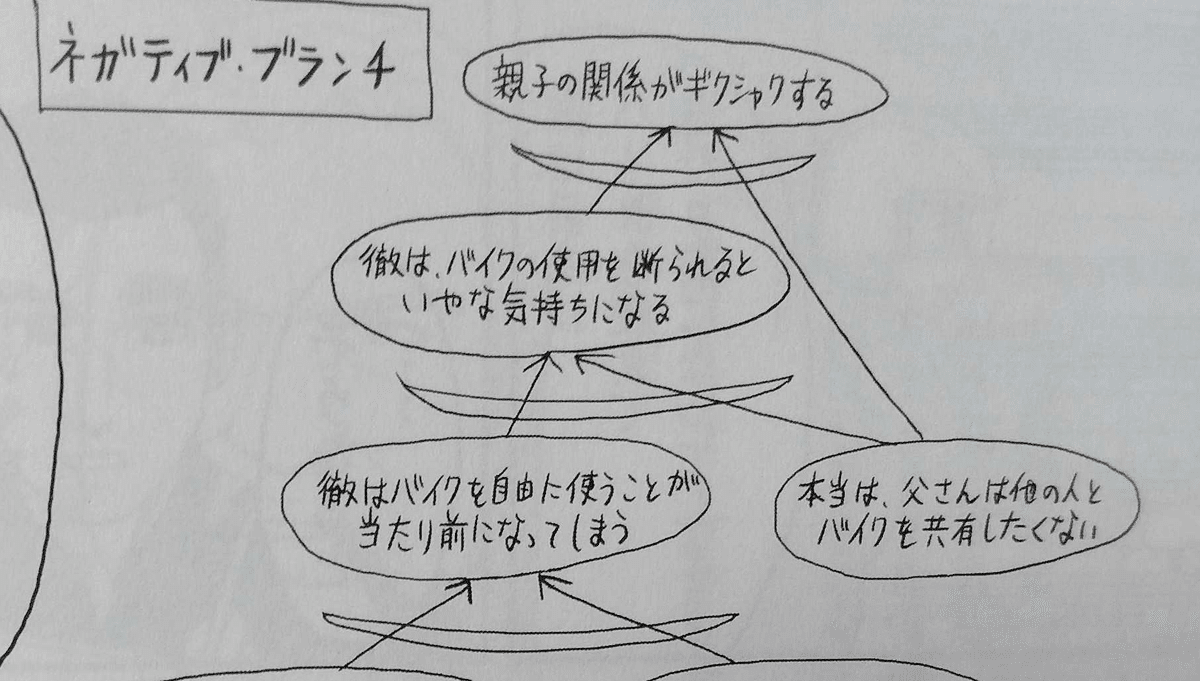 ネガティブ・ブランチ
親子の関係がギクシャクする
徹は、バイクの使用を断られると
いやな気持ちになる
徹はバイクを自由に使うことが
当たり前になってしまう
本当は、父さんは他の人と
バイクを共有したくない